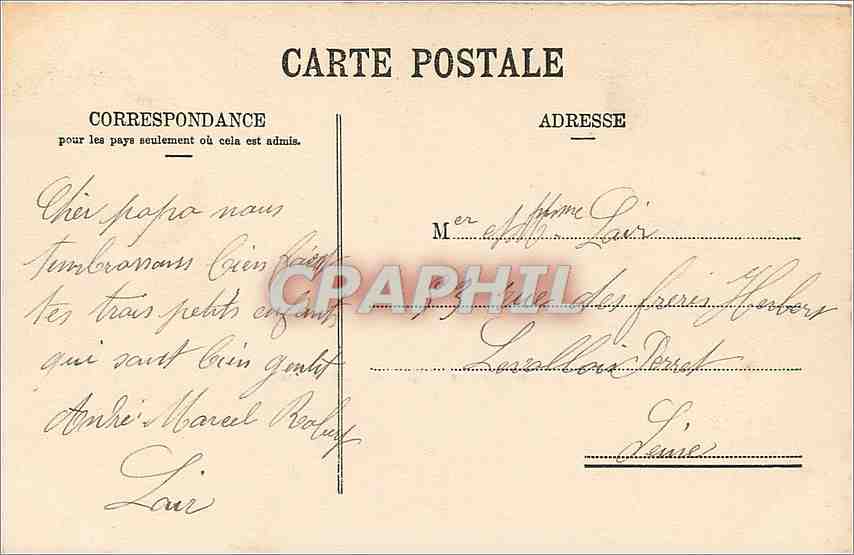 CARTE POSTALE
CORRESPONDANCE
pour les pays seulement où cela est admis.
Cher papa nous
tembrassons bien fort
tes trois petits enfants
qui sont bien gentil
André Marcel Robert
Lair
ADRESSE
Mer et Mme Lair
CPAPHIL
93 rue des frères Herbert
Levallois Perret
Seine